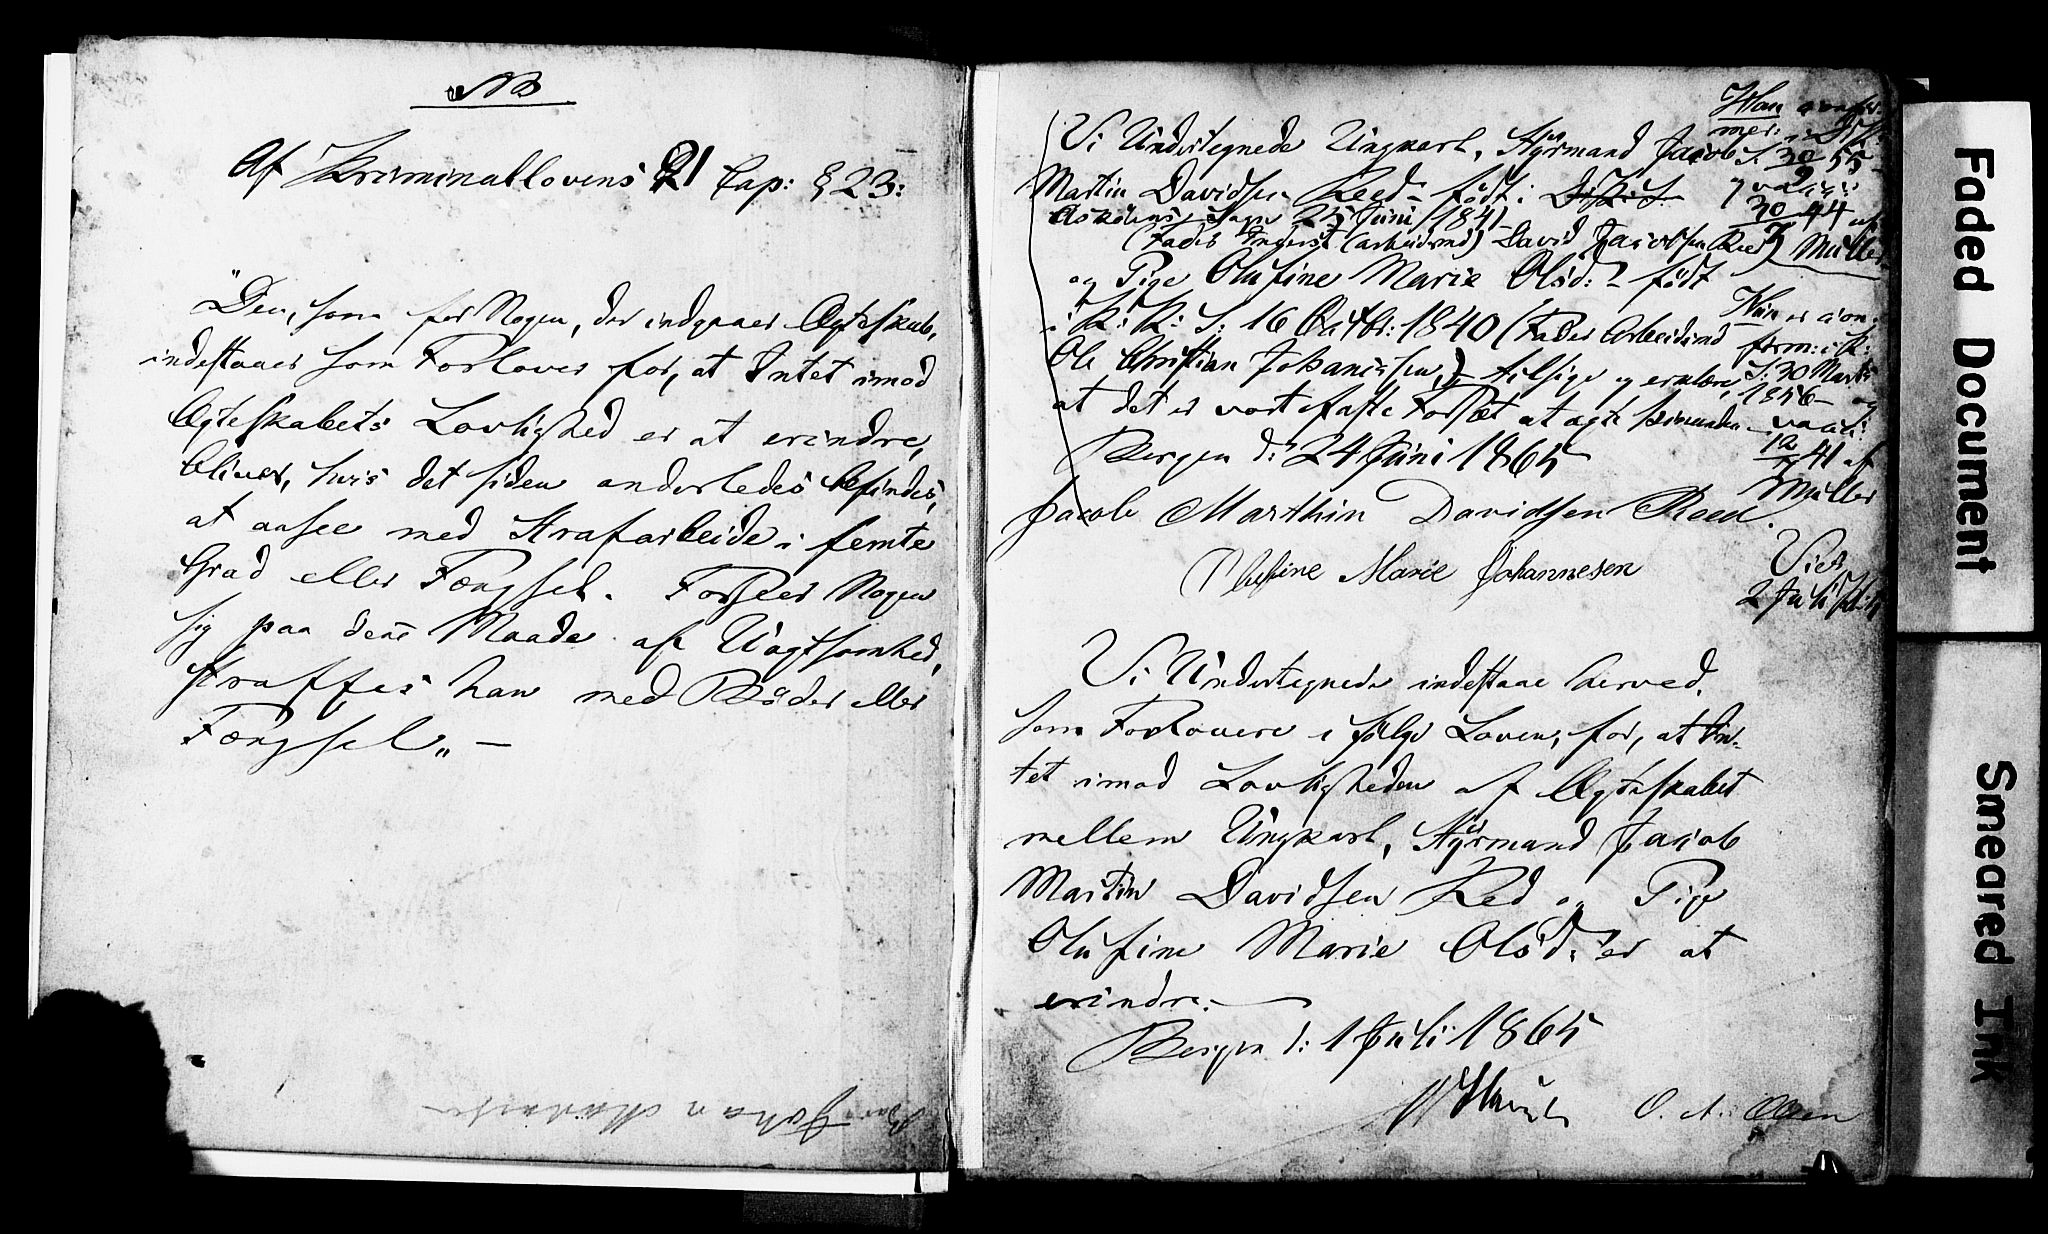 NB
Af Kriminallovens 21 Cap: § 23:
"Den, som for Nogen, der indgaaer Ægteskab,
indestaaer som Forlover for, at Intet imod
Ægteskabets Lovlighed er at erindre,
bliver, hvis det siden anderledes befindes,
at ansee med Strafarbeide i femte
Grad eller Fængsel. Forseer Nogen
sig paa denne Maade af Uagtsomhed,
straffes han med Bøder eller
Fængsel„ —
Johan
Vi Undertegnede Ungkarl, Styrmand Jacob
Martin Davidsen Reed – født i D: K: S.
Askøens Sogn 25 Juni 1841
(Fader Inderst (arbeidsmd) David Jacobsen Reed)
og Pige Olufine Marie Olsd: – født
i K: K: S: 16 Octbr: 1840 (Fader Arbeidsmd
Ole Christian Johannessen,) – tilsige og erklære,
at det er vort faste Forsæt at ægte hinanden
Bergen d: 24 Juni 1865
Jacob Marthin Davidsen Reed.
Olufine Marie Johannesen
Han
S. 30/9 55
og vac:
30/7 44 af
Müller
Hun er con-
firm: i K:
S: 30 Marts
1856 – og
vacci:
12/7 41 af
Müller
Viet
2 Juli
Vi Undertegnede indestaae herved,
som Forlovere i følge Loven, for, at In-
tet imod Lovligheden af Ægteskabet
mellem Ungkarl, Styrmand Jacob
Martin Davidsen Red og Pige
Olufine Marie Olsd: er at
erindre. —
Bergen d: 1 Juli 1865
O. A. Olsen
Faded Document
Smeared Ink